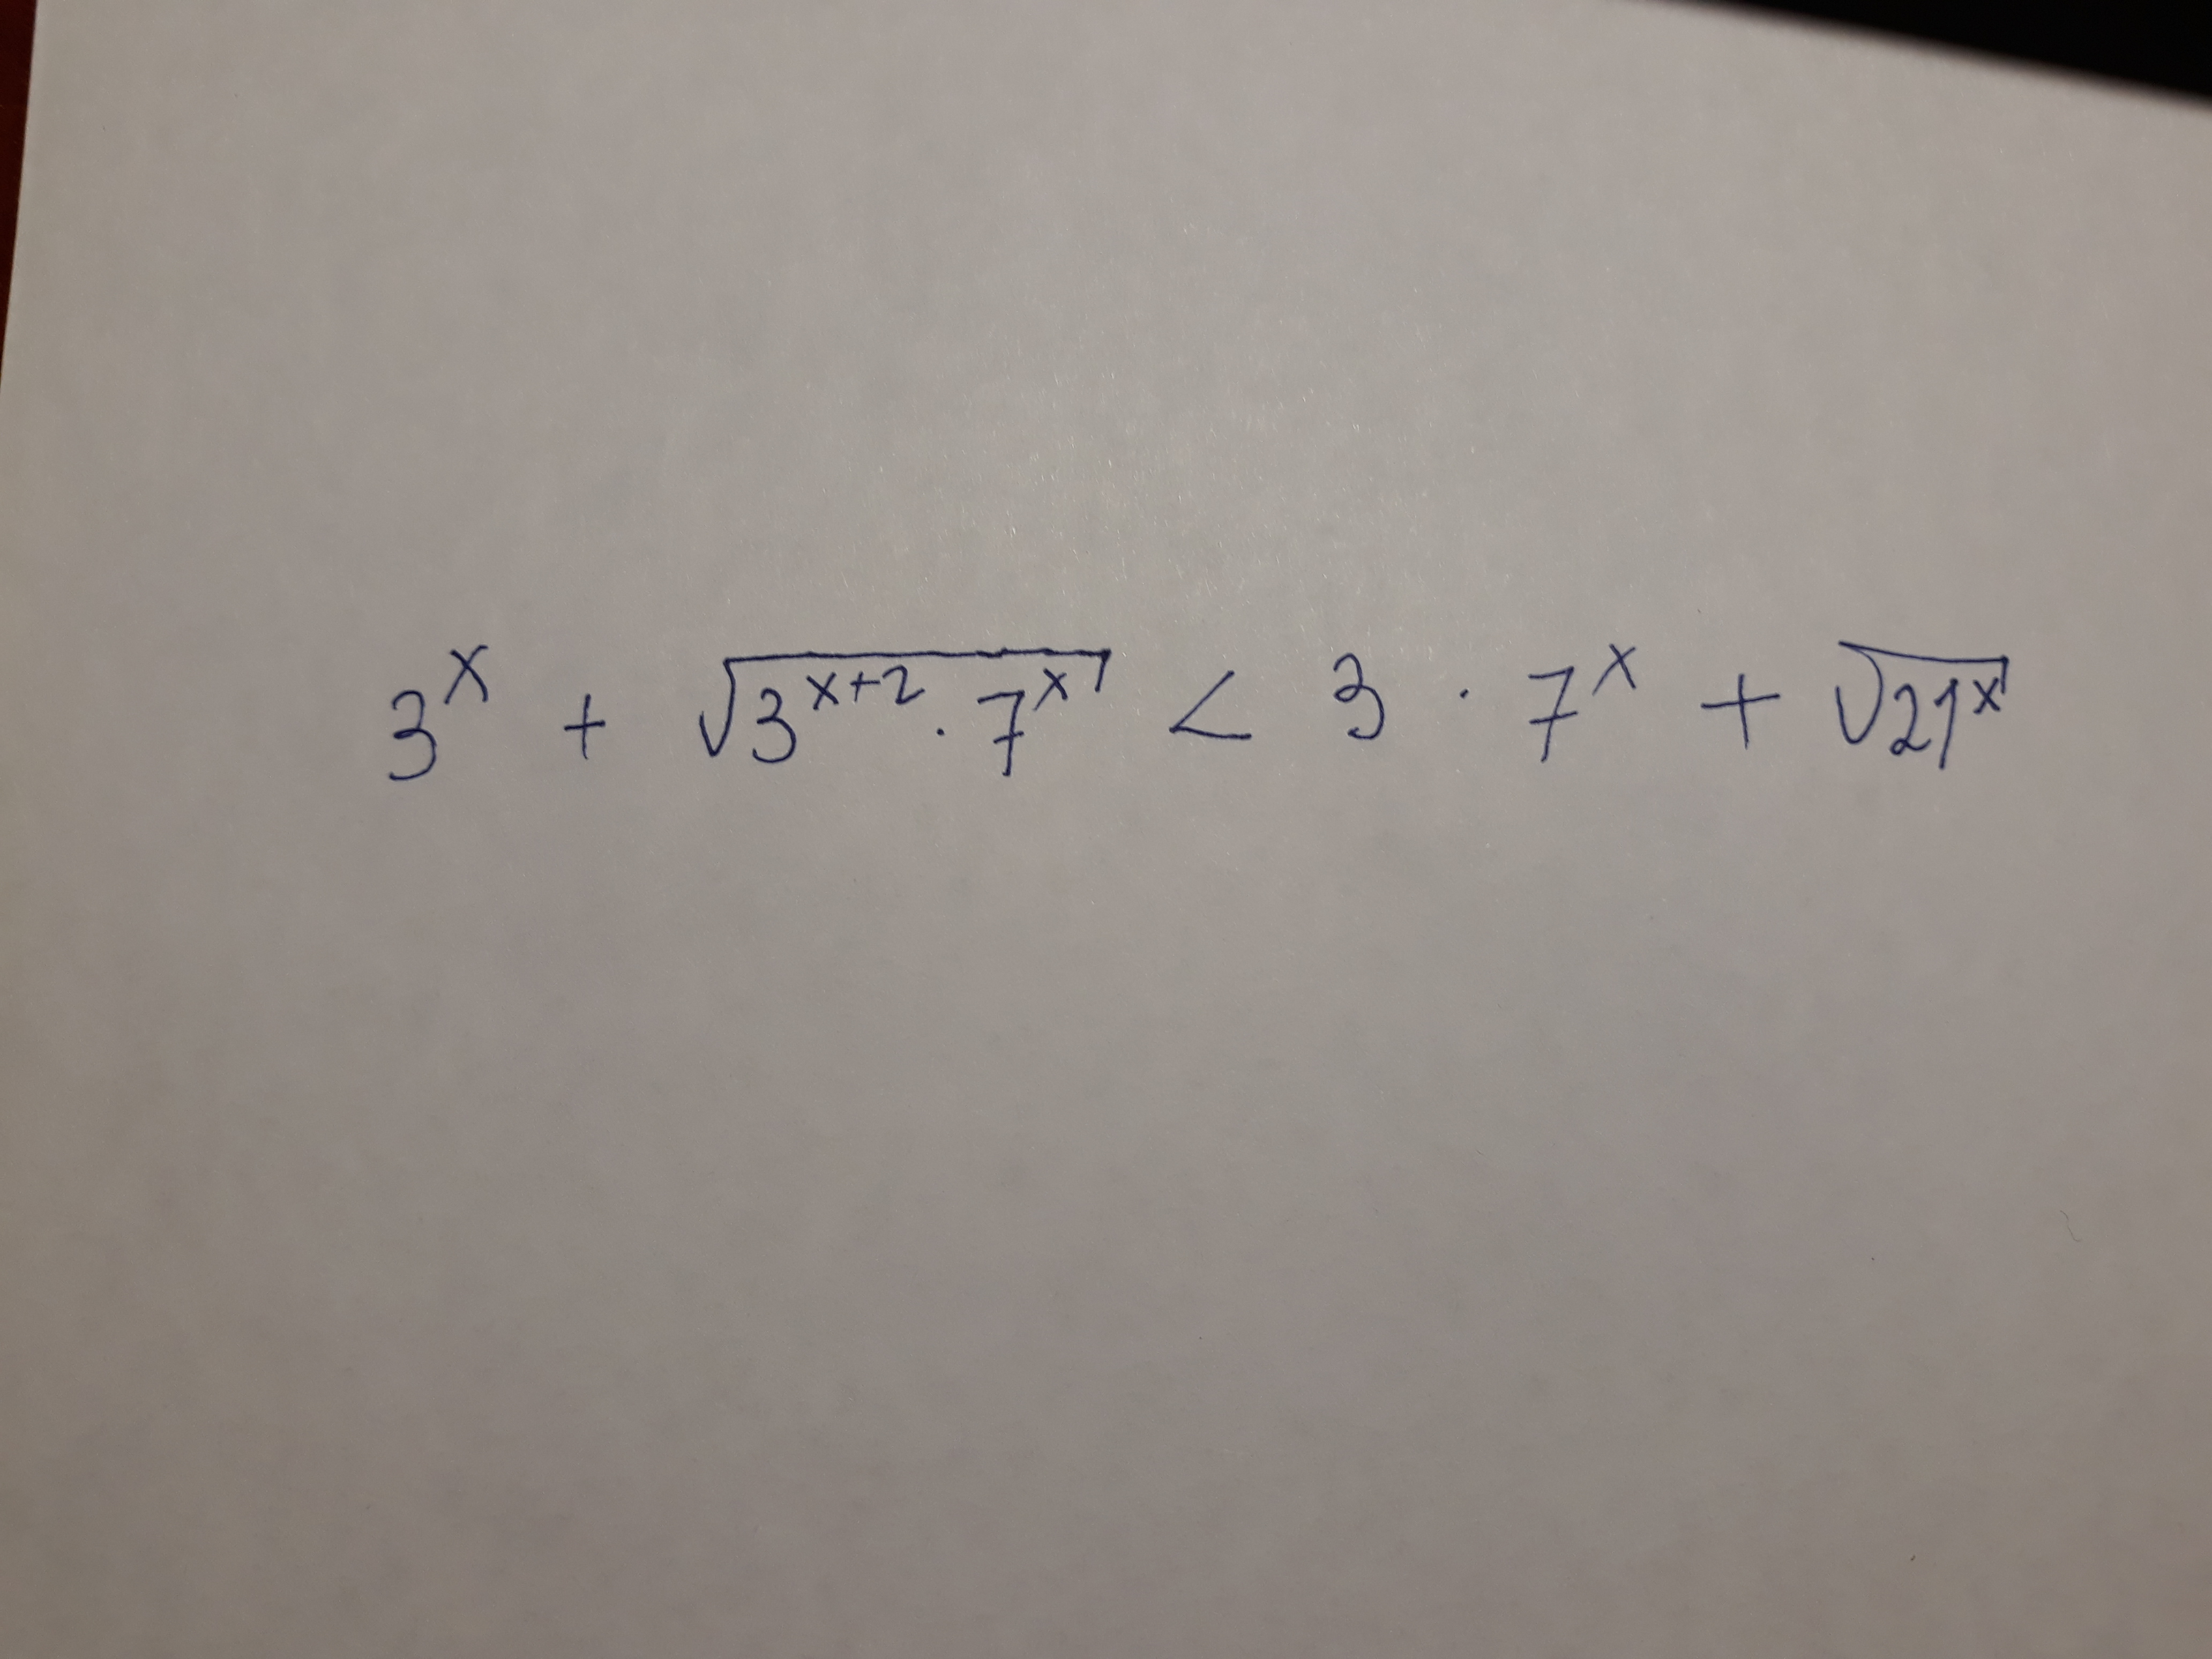 3^x + √(3^(x+2) · 7^x) < 3 · 7^x + √(21^x)